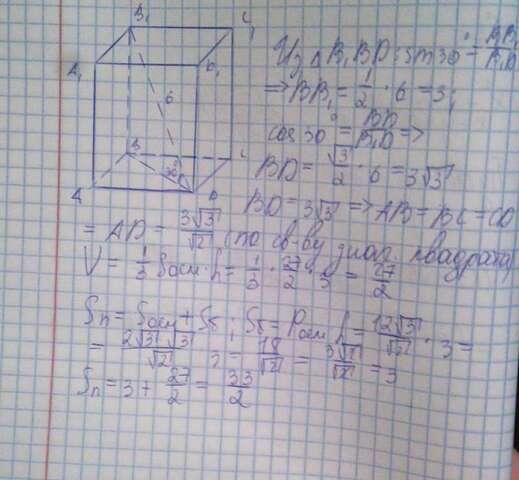 B₁ C₁
A₁ D₁
6
B C
30°
A D
Из △B₁BD: sin30° = BB₁/B₁D
=> BB₁ = 1/2 · 6 = 3;
cos 30° = BD/B₁D =>
BD = √3/2 · 6 = 3√3
BD = 3√3 => AB = BC = CD
= AD = 3√3/√2 (по св-ву диаг. квадрата)
V = 1/3 Sосн · h = 1/3 · 27/2 · 3 = 27/2
Sп = Sосн + Sб; Sб = Pосн · h = 12√3/√2 · 3 =
= 2√3 · √3/√2 · 3 = 18/√2 = 3√2/√2 = 3
Sп = 3 + 27/2 = 33/2